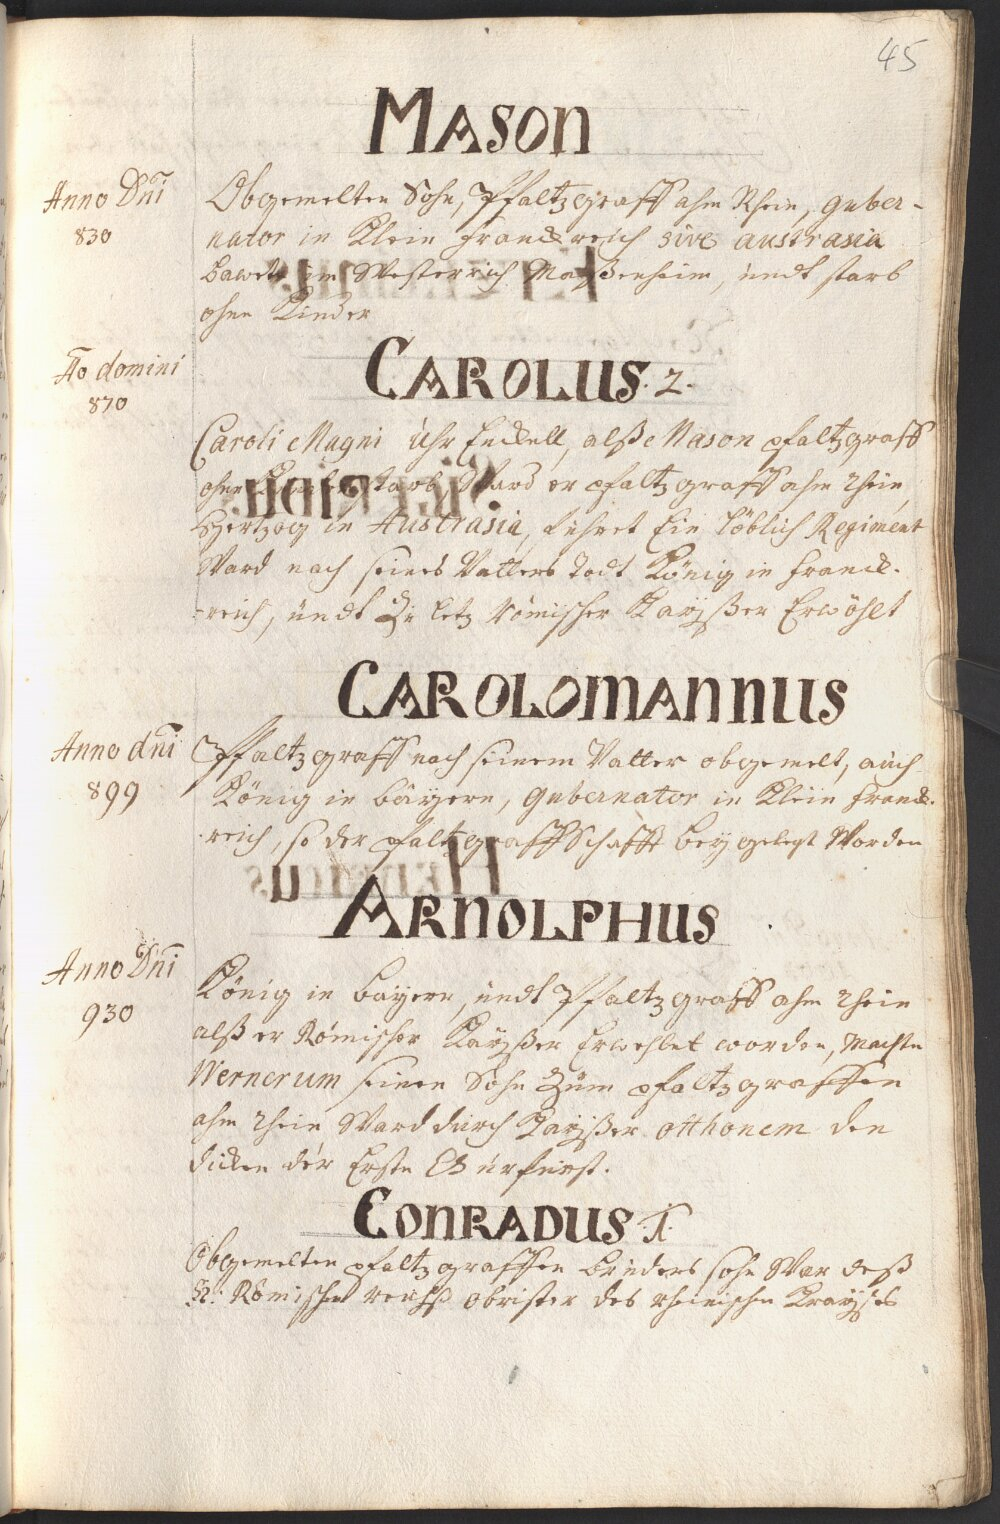 45
MASON
Anno Dñi
830
Obgemelten Sohn, Pfaltzgraff ahm Rhein, guber-
nator in Klein Franckreich sive austrasia
Bawete im Westerrich Maßenheim, undt starb
ohne Kinder
CAROLUS. 2.
Ao domini
870
Caroli Magni Uhr Enckell, alß Mason pfaltzgraff
ohne starb Ward er pfaltzgraff ahm rhein
Hertzog in Austrasia, führet Ein löblich Regiment
Ward nach seines Vatters Todt König in Franck-
-reich, undt Zu letz Römischer Kayßer Erwöhlt
CAROLOMANNUS
Anno dñi
899
Pfaltzgraff nach seinem Vatter obgemelt, auch
König in bäyern, Gubernator in Klein Franck-
-reich, so der pfaltzgraffschafft bey gelegt Worden
ARNOLPHUS
Anno Dñi
930
König in bäyern, undt Pfaltzgraff ahm rhein
alß er Römischer Kayßer Erwehlet worden, Machte
Wernerum seinen Sohn Züm pfaltzgraffen
ahm rhein Ward dürch Kayßer Otthonem den
dicken der Erste Churfürst.
CONRADUS 1.
Obgemelten pfaltzgraffen brüders sohn War deß
H: Römischen reichß obrister des rheinischen Kraÿses